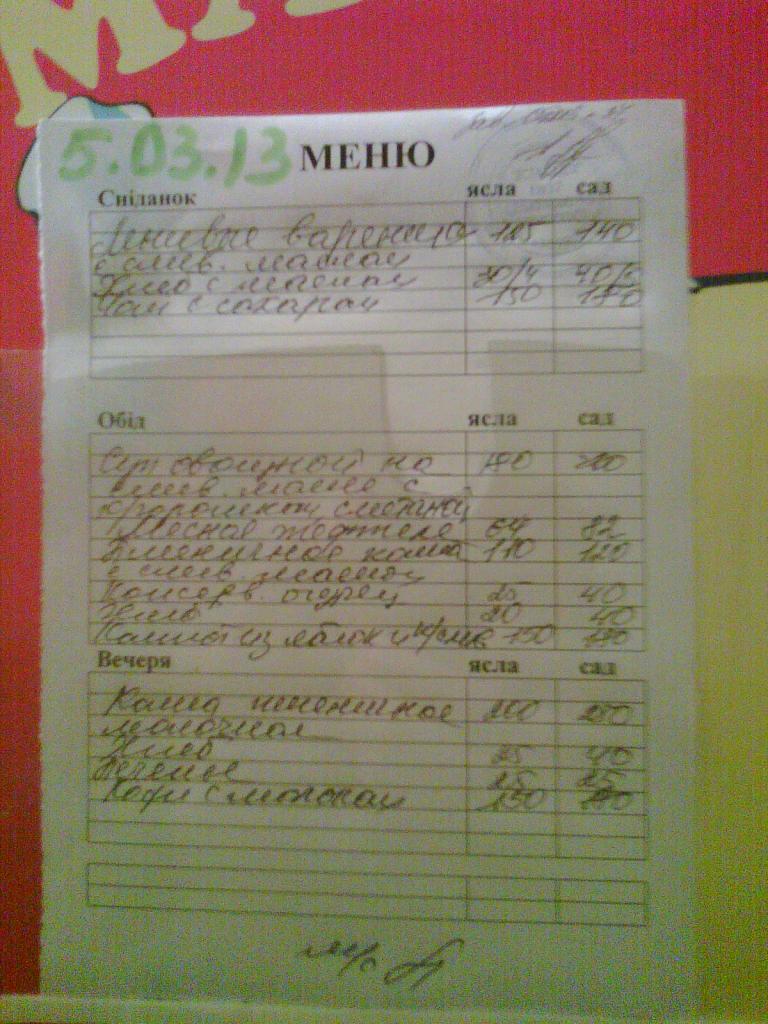 5.03.13 МЕНЮ
Сніданок ясла сад
Ленивые вареники 125 140
с слив. маслом
Хлеб с маслом 30/4 40/5
Чай с сахаром 150 180
Обід ясла сад
Суп овощной на 180 200
слив. масле с
сметаной
Мясные тефтели 64 82
каша 110 120
с слив. маслом
Консерв. огурец 25 40
Хлеб 20 40
Компот из яблок и 150 180
Вечеря ясла сад
Каша пшеничная 200 250
молочная
Хлеб 25 40
Печенье 25 25
Кофе с молоком 150 180
м/с